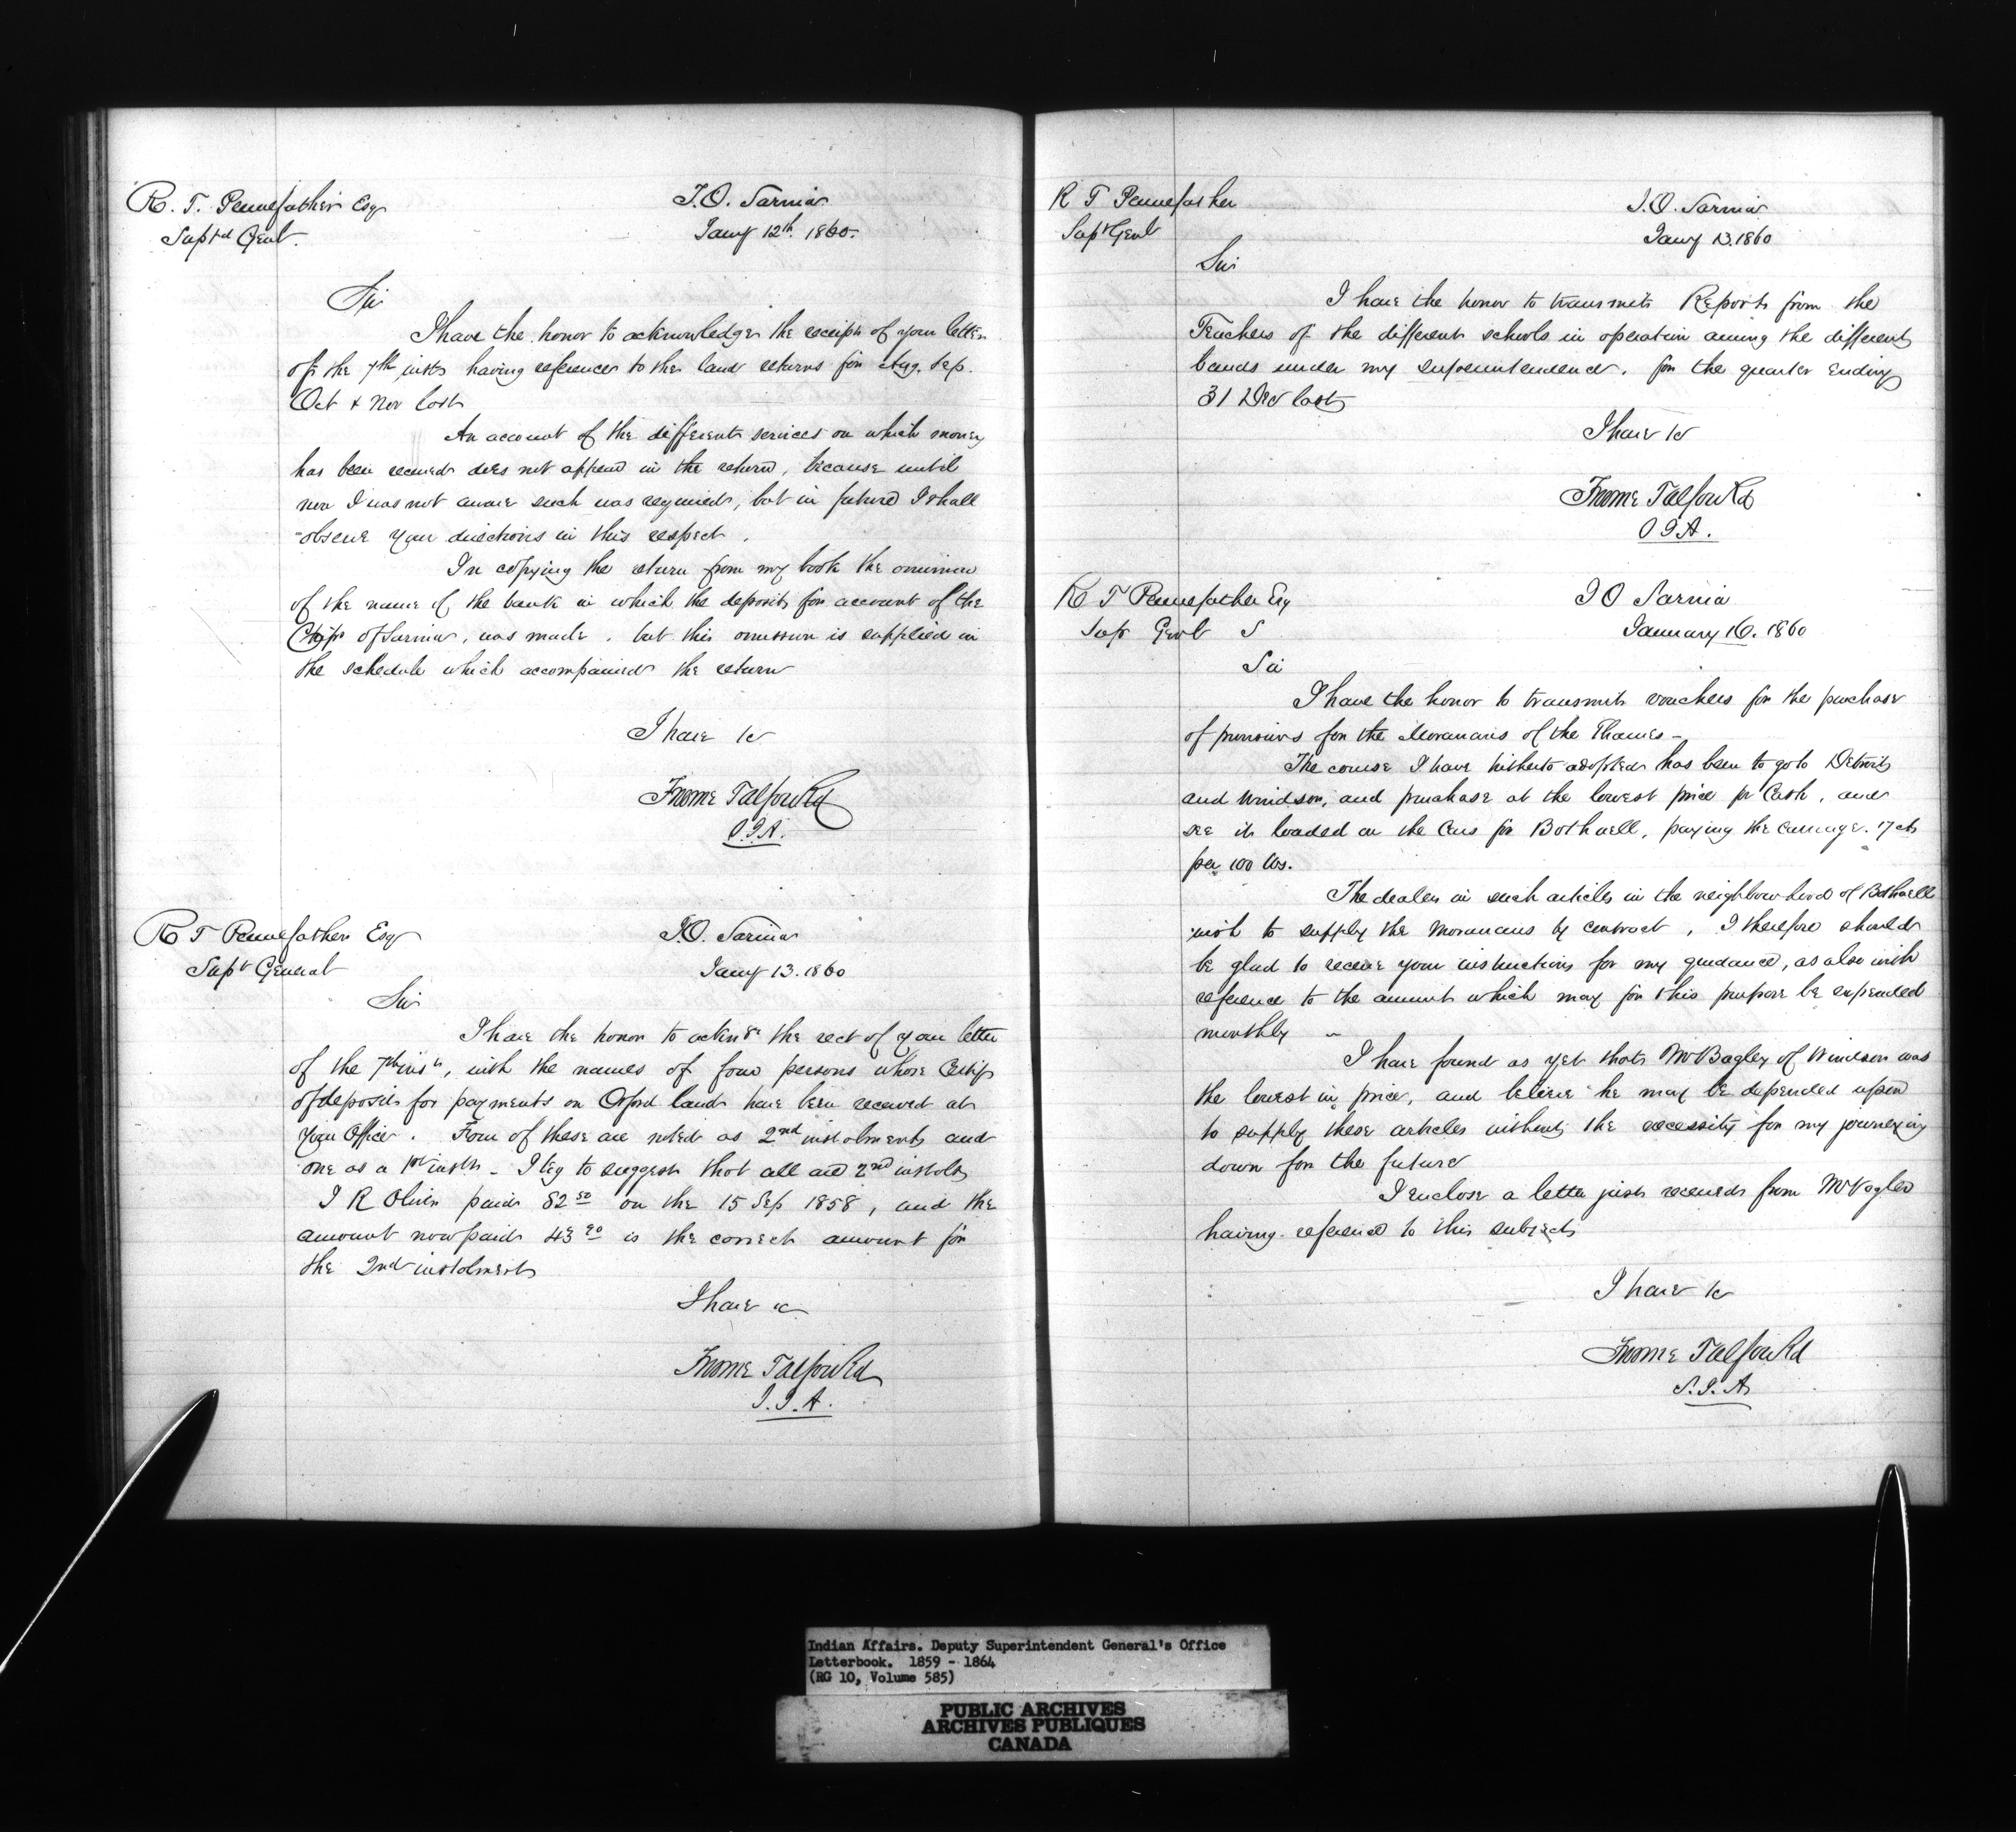 R. T. Pennefather Esqr
Suptd Genl.
I.O. Sarnia
Jany 12th. 1860.
Sir
I have the honor to acknowledge the receipt of your letter
of the 7th inst having reference to the land returns for Aug. Sep.
Oct & Nov last
An account of the different services on which money
has been received does not appear in the return, because until
now I was not aware such was required, but in future I shall
observe your directions in this respect.
In copying the return from my book the omission
of the name of the bank in which the deposit for account of the
Chips of Sarnia, was made. but this omission is supplied in
the schedule which accompanied the return
I have &c
Froome Talfourd
S.I.A.
R T Pennefather Esqr
Supt General
I.O. Sarnia
Jany 13. 1860
Sir
I have the honor to acknge the rect of your letter
of the 7th inst, with the names of four persons whose Certifs
of deposit for payments on Orford land have been received at
your Office. Four of these are noted as 2nd instalments and
one as a 1st instn - I beg to suggest that all are 2nd instals
J R Oliver paid 82 50 on the 15 Sep 1858, and the
amount now paid 43 20 is the correct amount for
the 2nd instalment
I have &c
Froome Talfourd
S.I.A.
R T Pennefather
Supt Genl
I.O. Sarnia
Jany 13. 1860
Sir
I have the honor to transmit Reports from the
Teachers of the different schools in operation among the different
bands under my superintendence. for the quarter ending
31 Dec last
I have &c
Froome Talfourd
S I A.
R T Pennefather Esq
Sup Genl S
I O Sarnia
January 16. 1860
Sir
I have the honor to transmit vouchers for the purchase
of provisions for the Moravians of the Thames -
The course I have hitherto adopted has been to go to Detroit
and Windsor, and purchase at the lowest price for Cash, and
see it loaded on the Cars for Bothwell, paying the carriage. 17 cts
per 100 lbs.
The dealers in such articles in the neighbourhood of Bothwell
wish to supply the Moravians by contract, I therefore should
be glad to receive your instructions for my guidance, as also with
reference to the amount which may for this purpose be expended
monthly -
I have found as yet that Mr Bagley of Windsor was
the lowest in price, and believe he may be depended upon
to supply these articles without the necessity for my journeying
down for the future
I enclose a letter just received from Mr Vogler
having reference to this subject
I have &c
Froome Talfourd
S.I.A.
Indian Affairs. Deputy Superintendent General's Office
Letterbook. 1859 - 1864
(RG 10, Volume 585)
PUBLIC ARCHIVES
ARCHIVES PUBLIQUES
CANADA